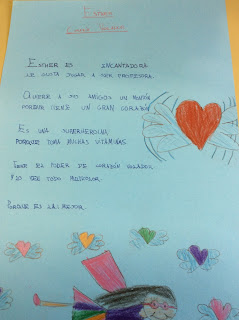 ESTHER
ESTHER ES ENCANTADORA
LE GUSTA JUGAR A SER PROFESORA.
QUIERE A SUS AMIGOS UN MONTÓN
PORQUE TIENE UN GRAN CORAZÓN
ES UNA SUPERHEROÍNA
PORQUE TOMA MUCHAS VITAMINAS.
TIENE EL PODER DE CORAZÓN VOLADOR
Y LO VEN TODO
PORQUE ES LA MEJOR.